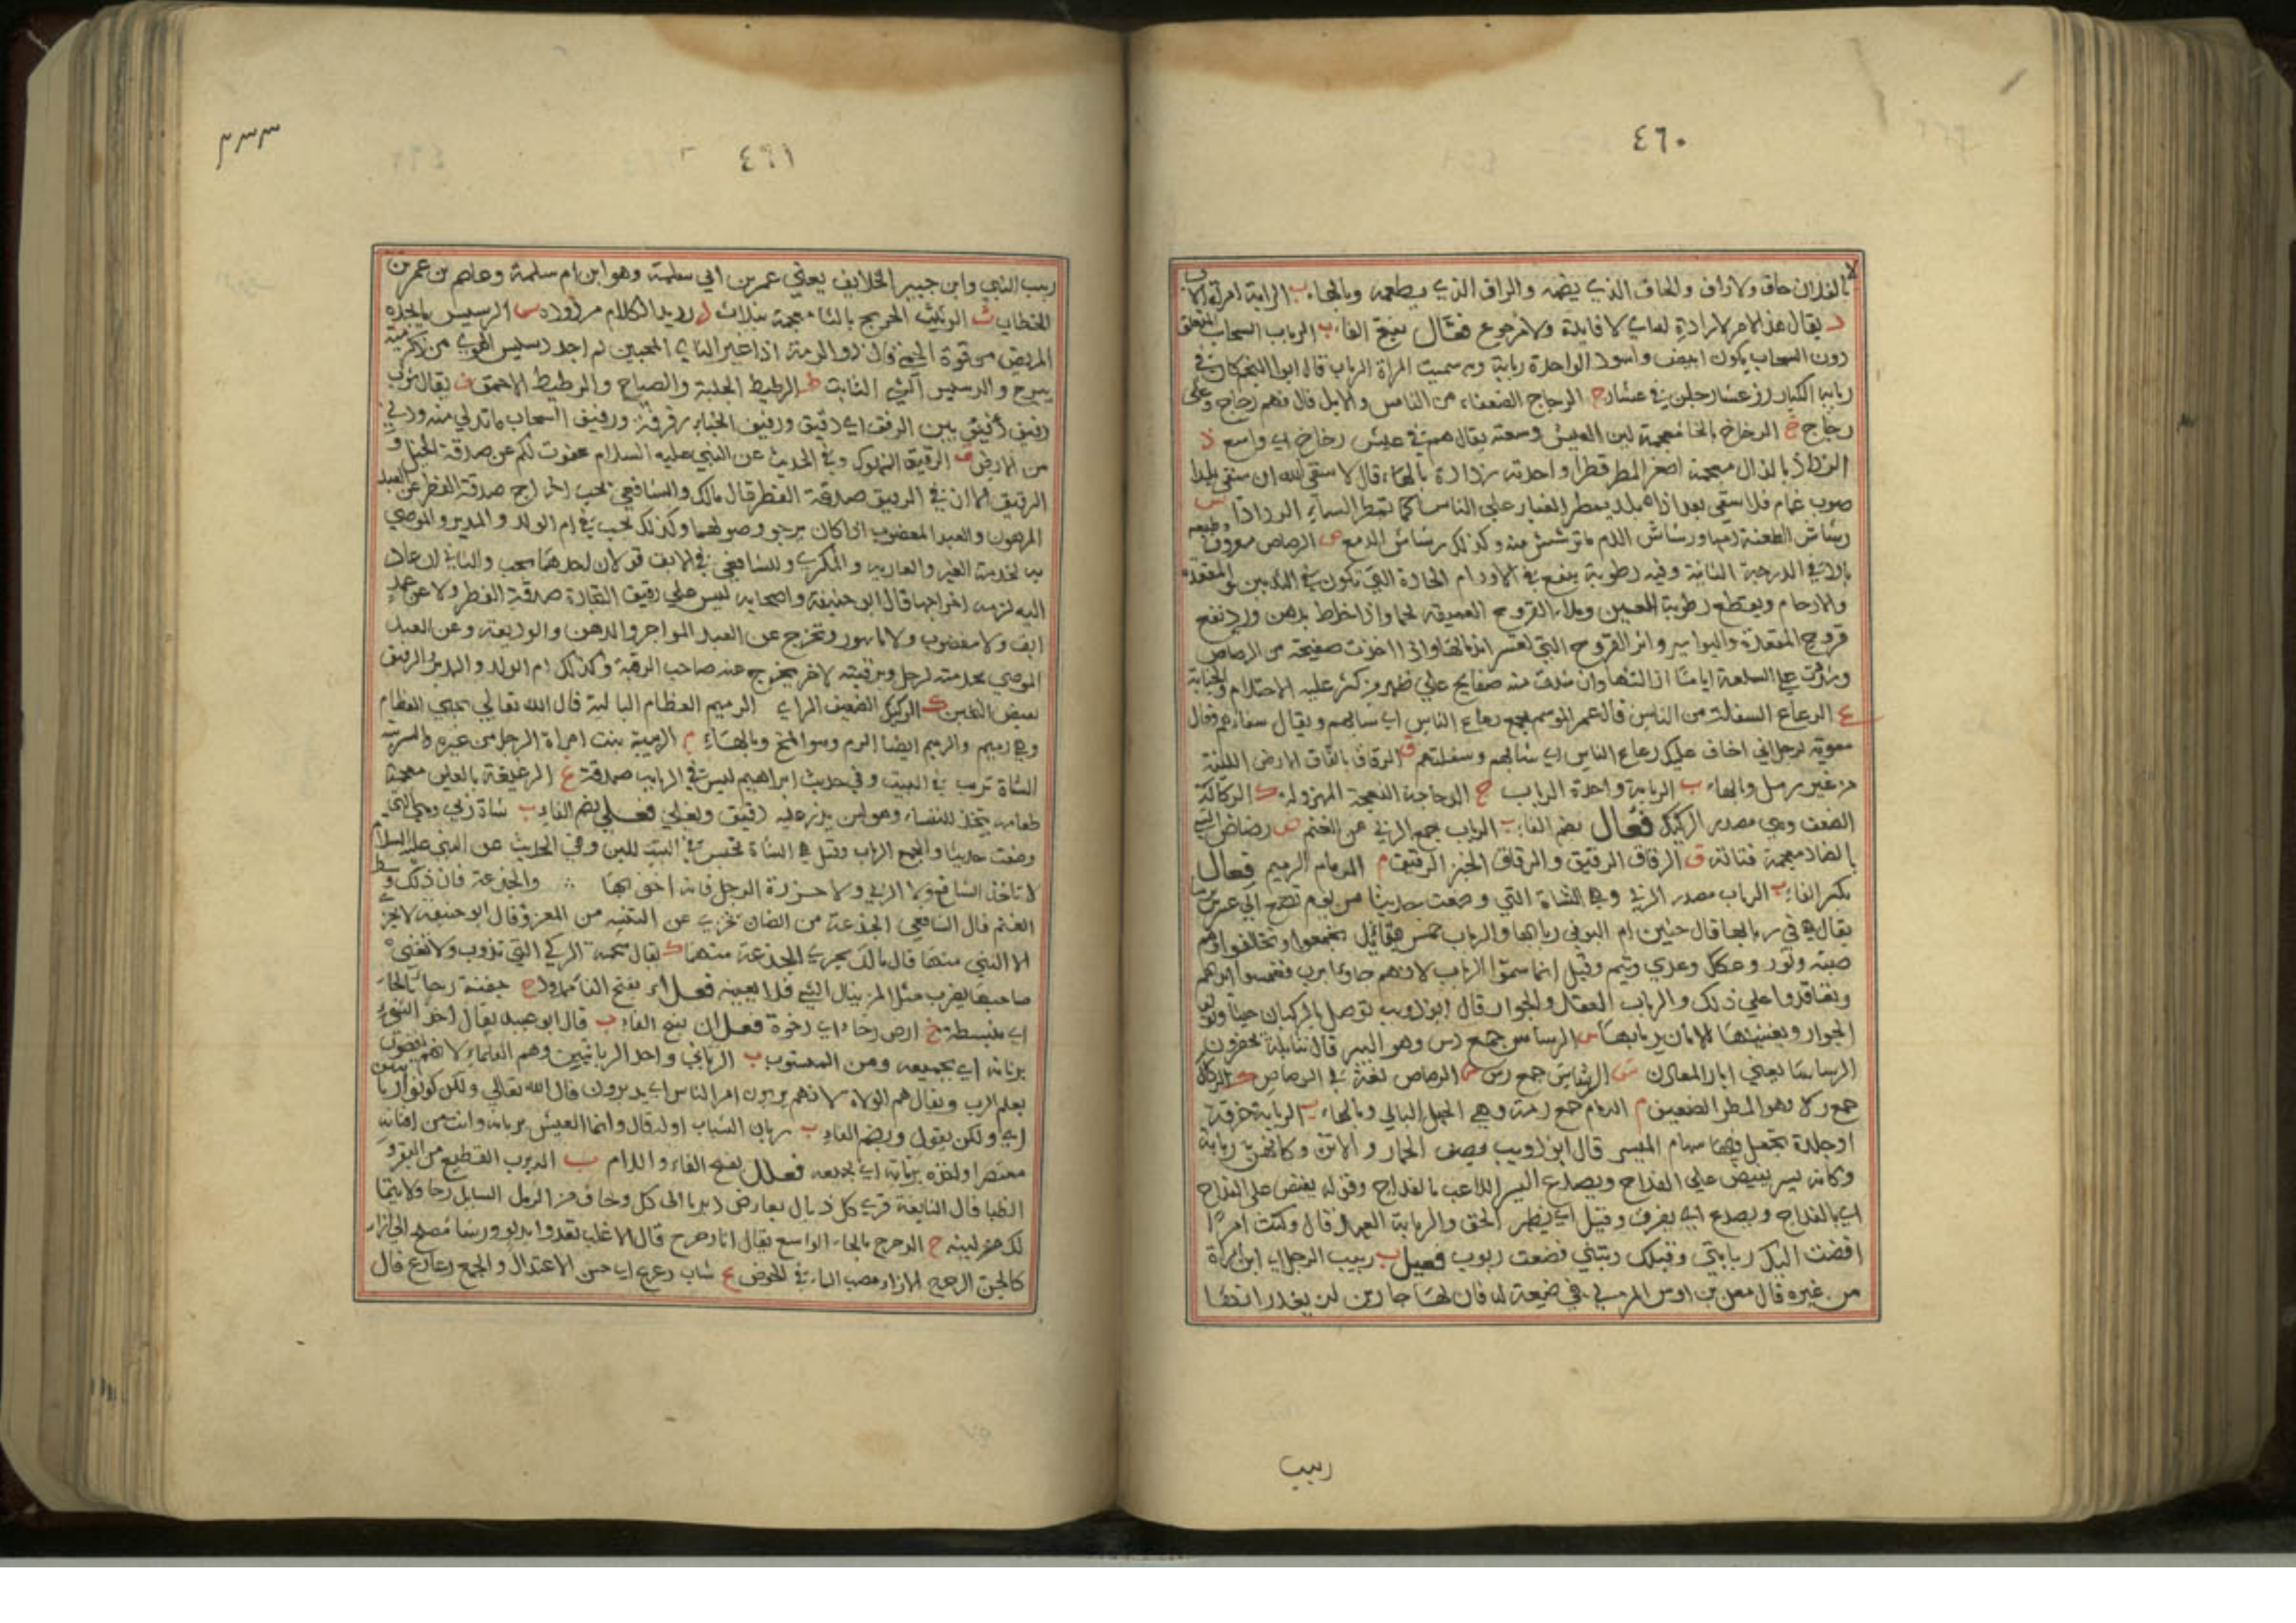 ٤٦٠
بالفلان حاق ولا راق والحاق الذي يضمه والراق الذي يطعمه وبالهاء ب الرابة امرأة الاب
د يقال هذا الامر لا رادة له اي لا فايدة ولا مرجوع فعال بفتح الفاء ب الرباب السحاب المتعلق
دون السحاب يكون ابيض واسود الواحدة ربابة وبه سميت المرأة الرباب قال ابو النجم كان في
ربابه الكبار رز عشار جلن في عشار ج الرجاج الضعفاء من الناس والابل قال فهم رجاج وعلى
رجاج خ الرخاخ بالخا معجمة لين العيش وسعته يقال هم في عيش رخاخ اي واسع ذ
الرذاذ بالذال معجمة اصغر المطر قطرا واحدته رذاذة بالهاء قال لا سقى الله ان سقى بلدا
صوب غمام فلا سقى بغداذا بلد يمطر الغبار على الناس كما تمطر السماء الرذاذا ش
رشاش الطعنة دمها ورشاش الدم ما ترشش منه وكذلك رشاش الدمع ص الرصاص معروف وطبعه
بارد في الدرجة الثانية وفيه رطوبة ينفع في الاورام الحارة التي تكون في الثديين والمقعدة
والارحام ويقطع رطوبة العين ويملا القروح العميقة لحما واذا خلط بدهن ورد نفع
قروح المقعدة والبواسير واثر القروح التي تعسر اندمالها واذا اخذت صفيحة من الرصاص
وشدت على السلعة اياما ازالتها وان شدت منه صفايح على ظهر من كثر عليه الاحتلام والجنابة
ع الرعاع السفلة من الناس قال عمر الموسم يجمع رعاع الناس اي سفالهم ويقال سفاءهم وقال
معوية لرجل اني اخاف عليك رعاع الناس اي شبالهم وسفلتهم ق الرقاق بالقاف الارض اللينة
من غير رمل وبالهاء ب الربابة واحدة الرباب ج الرجاجة النعجة المهزولة ك الركاكة
الضعف وهي مصدر الركيك فعال بضم الفاء ب الرباب جمع الربى من الغنم ض رضاض الشيء
بالضاد معجمة فتاته ق الرقاق الرقيق والرقاق الخبز الرقيق م الرمام الرميم فعال
بكسر الفاء ب الرباب مصدر الربى وهي الشاة التي وضعت حديثا من يوم تضع الى عشرين
يقال هي في ربابها قال حنين ام البو في ربابها والرباب خمس قبائل تجمعوا وتحالفوا وهم
ضبة وثور وعكل وعدي وتيم وقيل انما سموا الرباب لانهم جاؤا برب فغمسوا ايديهم
وتعاقدوا على ذلك والرباب العقد والجوار قال ابو ذويب توصل بالركبان حينا وتولف
الجوار ويغشيها الامان ربابها س الرساس جمع رس وهو البير قال تنابلة يحفرون
الرساسا يعني ابار المعادن ش الرشاش جمع رش ص الرصاص لغة في الرصاص ك الركاك
جمع رك وهو المطر الضعيف م الرمام جمع رمة وهي الحبل البالي وبالهاء ب الربابة خرقة
او جلدة تجعل فيها سهام الميسر قال ابو ذويب يصف الحمار والاتن وكانهن ربابة
وكانه يسر يفيض على القداح ويصدع اليسر اللاعب بالقداح وقوله يفيض على القداح
اي بالقداح ويصدع اي يفرق وقيل اي يظهر الحق والربابة العهد قال وكنت امرءا
افضت اليك ربابتي وقبلك ربتني فضعت ربوب فعيل ب ربيب الرجل اي ابن امرأة
من غيره قال معن بن اوس المزني في ضيعة له فان لها جارين لن يغدرا بها
ربيب
٤٦١
ربيب النبي وابن خير الخلايف يعني عمر بن ابي سلمة وهو ابن ام سلمة وعاصم بن عمر بن
الخطاب ث الرثيث الجريح بالثا معجمة بثلاث د رديد الكلام مردوده س الرسيس ما يجده
المريض من قوة الحمى قال ذو الرمة اذا غير الناي المحبين لم اجد رسيس الهوى من ذكر مية
يبرح والرسيس الشيء الثابت ط الرطيط الجلبة والصياح والرطيط الاحمق ف يقال ثوب
من الارض ق الرقيق المملوك وفي الحديث عن النبي عليه السلام عفوت لكم عن صدقة الخيل و
الرقيق الا ان في الرقيق صدقة الفطر قال مالك والشافعي يجب اخراج صدقة الفطر عن العبد
المرهون والعبد المغصوب اذا كان يرجو وصولهما وكذلك يجب في ام الولد والمدبر والموصى
به لخدمة الغير والعارية والمكرى وللشافعي في الابق قولان احدهما يجب والثاني ان عاد
اليه لزمه اخراجها قال ابو حنيفة واصحابه ليس على رقيق التجارة صدقة الفطر ولا عن عبد
ابق ولا مغصوب ولا ماسور وتخرج عن العبد المواجر والرهن والوديعة وعن العبد
الموصى بخدمته لرجل وبرقبته لاخر يخرج عنه صاحب الرقبة وكذلك ام الولد والمدبر الرقيق
نقيض الثخين ك الركيك الضعيف الراي الرميم العظام البالية قال الله تعالى يحيي العظام
وهي رميم والرميم ايضا الرم وهو المخ وبالهاء ب الربيبة بنت امرأة الرجل من غيره والربيبة
الشاة تربب في البيت وفي حديث ابراهيم ليس في الربايب صدقة غ الرغيغة بالغين معجمة
طعام يتخذ للنفساء وهو لبن يذر عليه دقيق ويغلى فعلى بضم الفاء ب شاة ربى وهي التي
وضعت حديثا والجمع الرباب وقيل هي الشاة تحبس في البيت للبن وفي الحديث عن النبي عليه السلام
لا تاخذ الشافع ولا الربى ولا حزرة الرجل فانه احق بها والجذعة فان ذلك وسط
الغنم قال الشافعي الجذعة من الضان تجزي عن الثنية من المعز وقال ابو حنيفة لا يجز
الا الثني منها قال مالك يجزي الجذعة منها ك يقال شحمة الركى التي تذوب ولا تغني
صاحبها يضرب مثلا لمن ينال الشيء فلا يعينه فعلاء بفتح الفاء ممدود ح جفنة رحاء بالحاء
اي منبسطة خ ارض رخاء اي رخوة فعلان بفتح الفاء ب قال ابو عبيد يقال اخذ الشيء
بربانه اي بجميعه ومن المنسوب ب الرباني واحد الربانيين وهم العلماء لانهم يقضون
بعلم الرب ويقال هم الولاة لانهم يربون امر الناس اي يدبرون قال الله تعالى ولكن كونوا ربانيين
اي ولكن يقول وبضم الفاء ب ربان الشباب اوله قال وانما العيش بربانه وانت من افنانه
معتصر واخذه بربانه اي بجميعه فعلل بفتح الفاء واللام ب الربرب القطيع من البقر و
كالجن الرحرح الازاء مصب الماء في الحوض ع شاب رعرع اي حسن الاعتدال والجمع رعارع قال